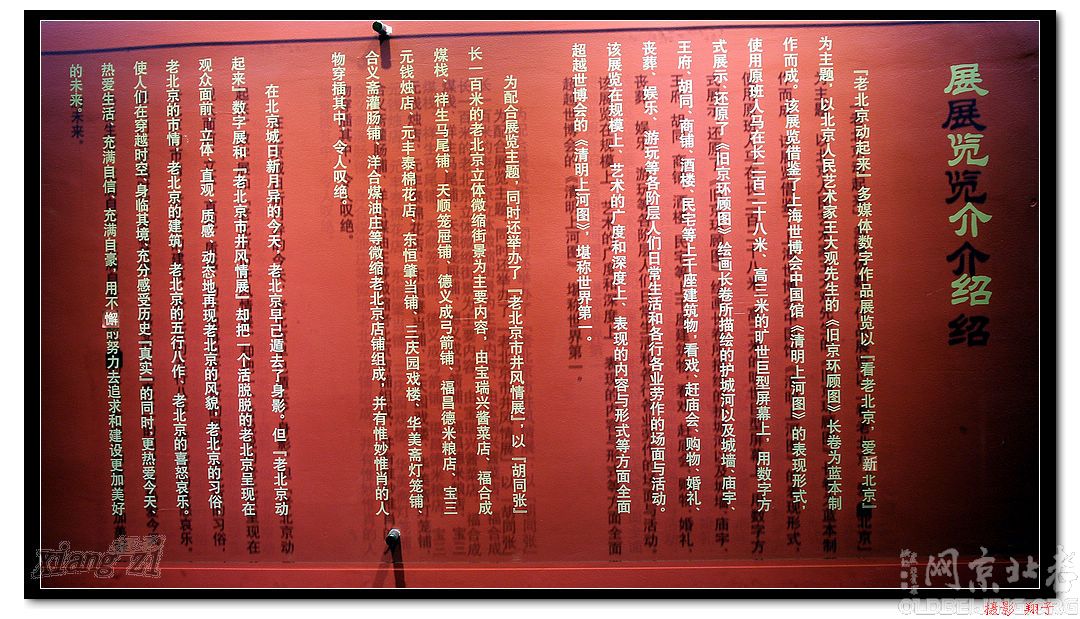 展览介绍
「老北京动起来」多媒体数字作品展览以「看老北京，爱新北京」
为主题，以北京人民艺术家王大观先生的《旧京环顾图》长卷为蓝本制
作而成。该展览借鉴了上海世博会中国馆《清明上河图》的表现形式，
使用原班人马在长二百二十八米、高三米的旷世巨型屏幕上，用数字方
式展示、还原了《旧京环顾图》绘画长卷所描绘的护城河以及城墙、庙宇、
王府、胡同、商铺、酒楼、民宅等上千座建筑物，看戏、赶庙会、购物、婚礼、
丧葬、娱乐、游玩等各阶层人们日常生活和各行各业劳作的场面与活动。
该展览在规模上、艺术的广度和深度上、表现的内容与形式等方面全面
超越世博会的《清明上河图》，堪称世界第一。
为配合展览主题，同时还举办了「老北京市井风情展」，以「胡同张」
长一百米的老北京立体微缩街景为主要内容，由宝瑞兴酱菜店、福合成
煤栈、祥生马尾铺、天顺笼屉铺、德义成弓箭铺、福昌德米粮店、宝三
元钱烛店、元丰泰棉花店、东恒肇当铺、三庆园戏楼、华美斋灯笼铺、
合义斋灌肠铺、洋合煤油庄等微缩老北京店铺组成，并有惟妙惟肖的人
物穿插其中，令人叹绝。
在北京城日新月异的今天，老北京早已遁去了身影。但「老北京动
起来」数字展和「老北京市井风情展」却把一个活脱脱的老北京呈现在
观众面前，立体、直观、质感、动态地再现老北京的风貌，老北京的习俗，
老北京的市情，老北京的建筑，老北京的五行八作、老北京的喜怒哀乐。
使人们在穿越时空、身临其境、充分感受历史「真实」的同时，更热爱今天、
热爱生活，充满自信、充满自豪，用不懈的努力去追求和建设更加美好
的未来。
xiang zi
网京北老
OLDBEIJING.ORG
摄影 翔子